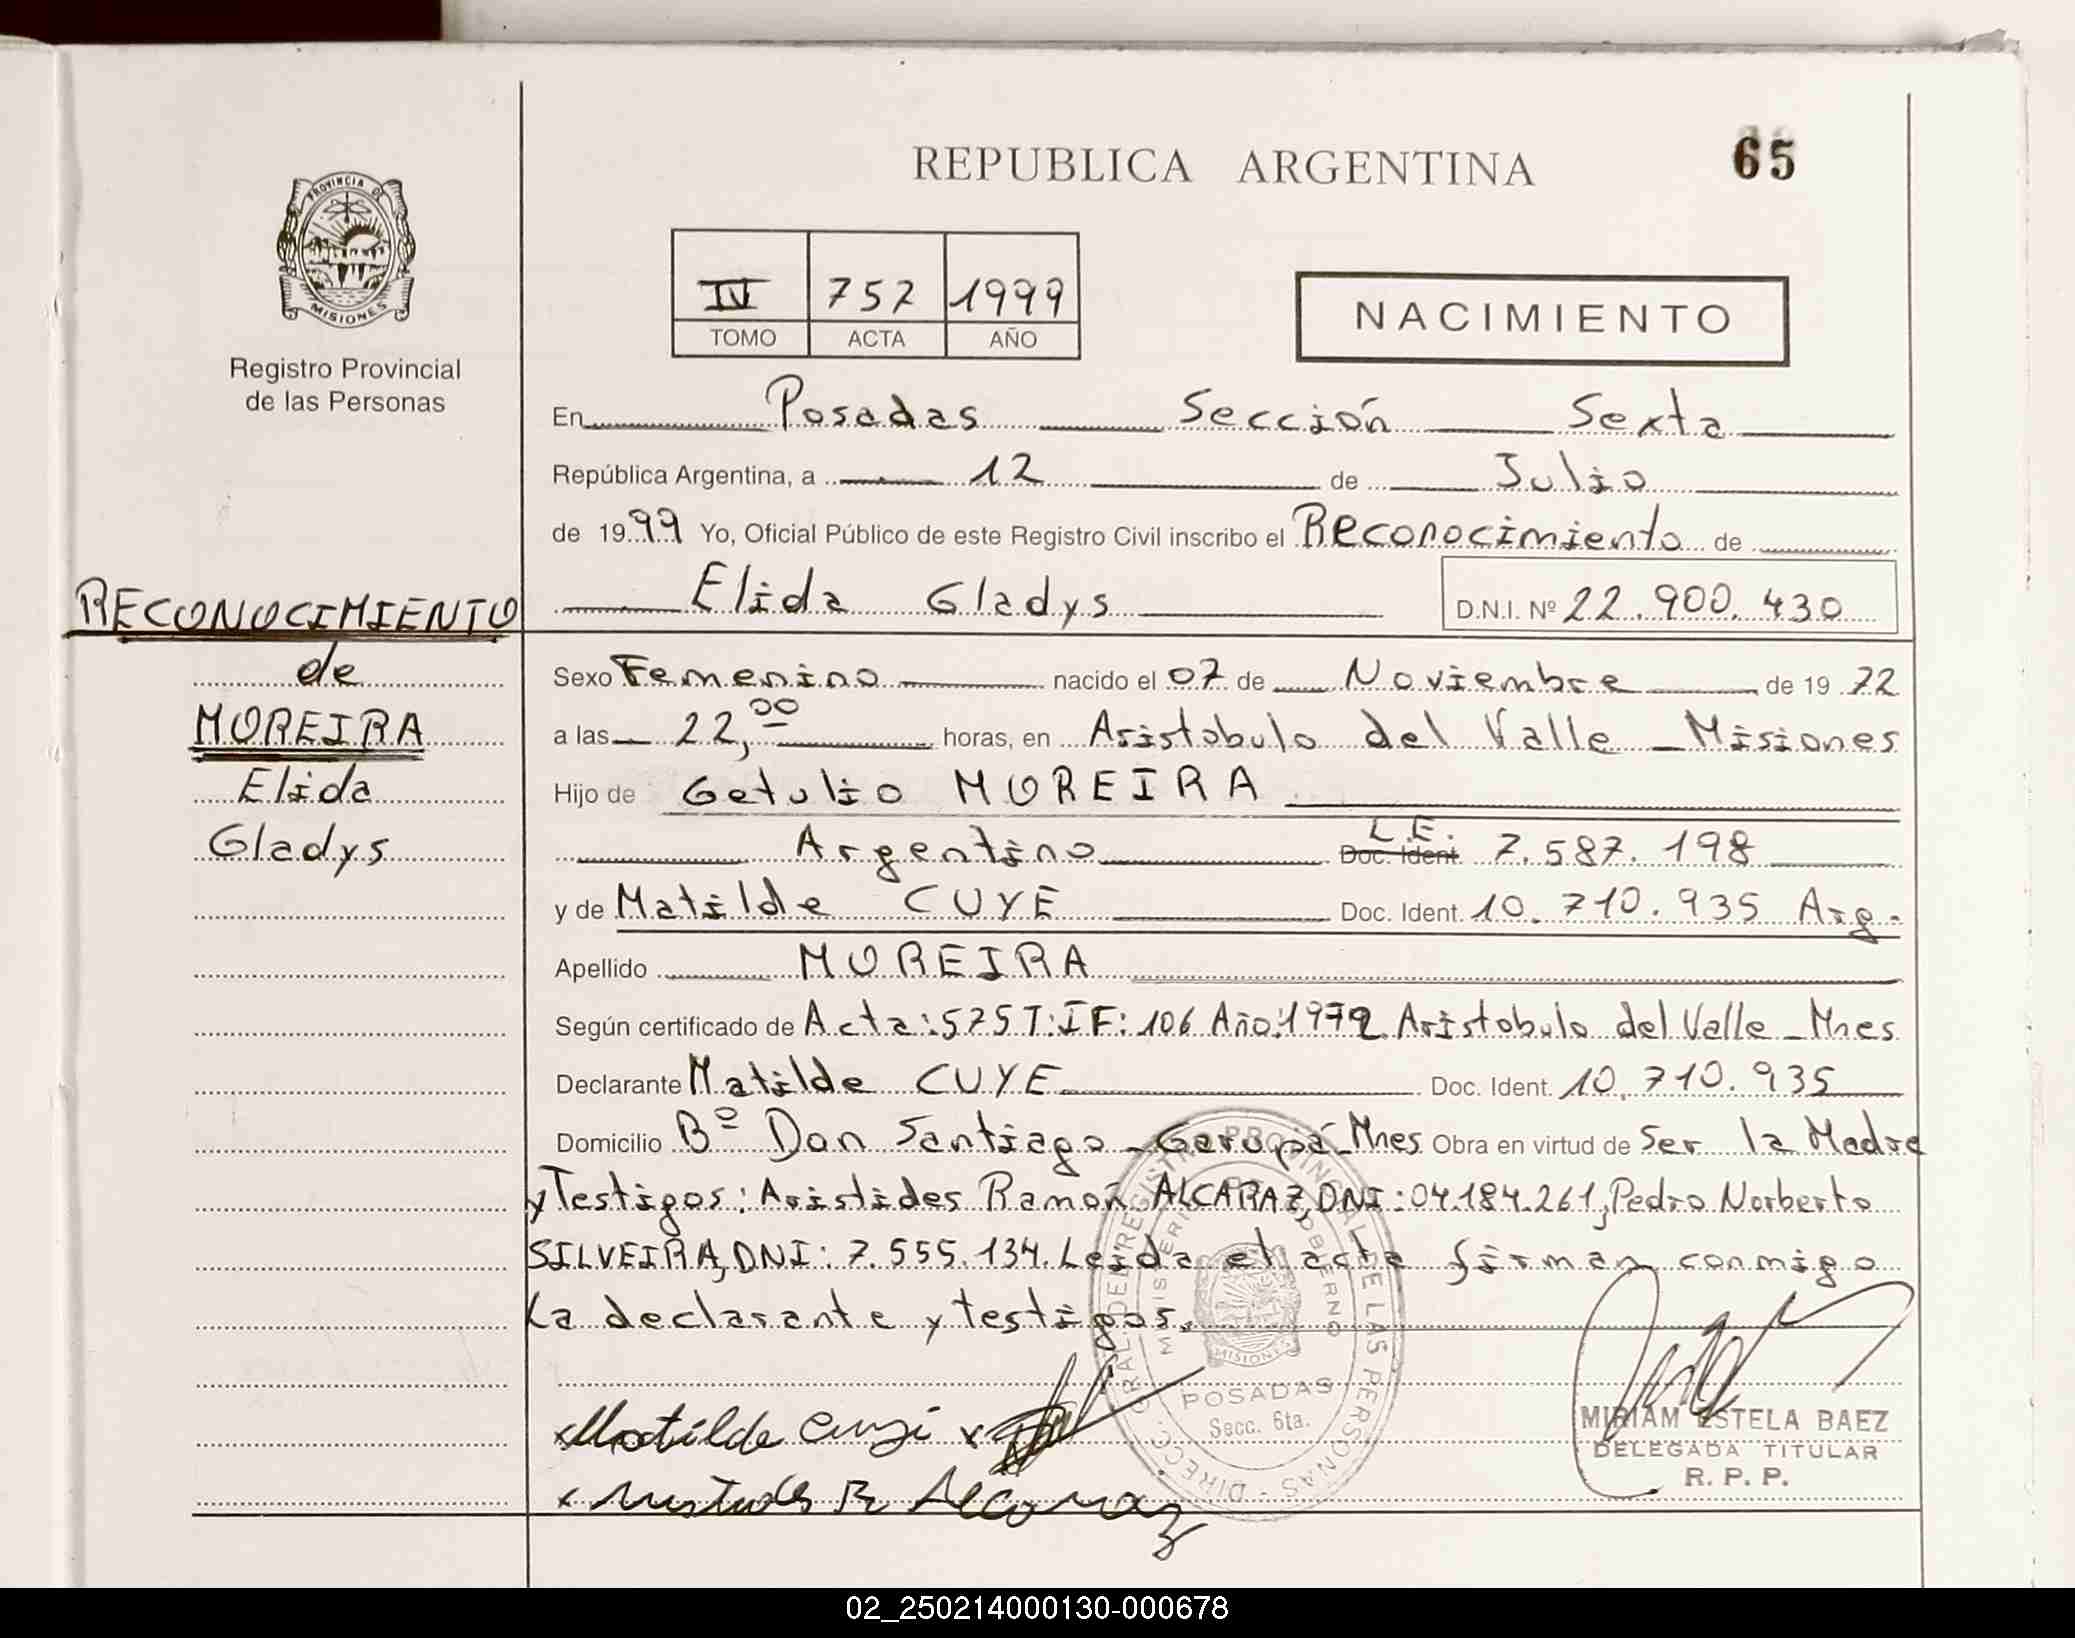 REPUBLICA ARGENTINA
65
PROVINCIA DE
MISIONES
Registro Provincial
de las Personas
IV 757 1999
TOMO ACTA AÑO
NACIMIENTO
En Posadas Sección Sexta
República Argentina, a 12 de Julio
de 1999 Yo, Oficial Público de este Registro Civil inscribo el Reconocimiento de
Elida Gladys D.N.I. Nº 22.900.430
RECONOCIMIENTO
de
MOREIRA
Elida
Gladys
Sexo Femenino nacido el 07 de Noviembre de 19 72
a las 22,00 horas, en Aristobulo del Valle - Misiones
Hijo de Getulio MOREIRA
Argentino L.E. Doc. Ident. 7.587.198
y de Matilde CUYE Doc. Ident. 10.710.935 Arg.
Apellido MOREIRA
Según certificado de Acta: 575 T: I F: 106 Año: 1972 Aristobulo del Valle - Mnes
Declarante Matilde CUYE Doc. Ident. 10.710.935
Domicilio Bº Don Santiago - Garupá - Mnes Obra en virtud de Ser la Madre
y Testigos: Aristides Ramón ALCARAZ, DNI: 04.184.261, Pedro Norberto
SILVEIRA, DNI: 7.555.134. Leida el acta firman conmigo
la declarante y testigos.
DIRECC. GRAL. DEL REGISTRO PROVINCIAL DE LAS PERSONAS
MINISTERIO DE GOBIERNO
MISIONES
POSADAS
Secc. 6ta.
x Matilde Cuyi x
x Aristides R Alcaraz
MIRIAM ESTELA BAEZ
DELEGADA TITULAR
R. P. P.
02_250214000130-000678